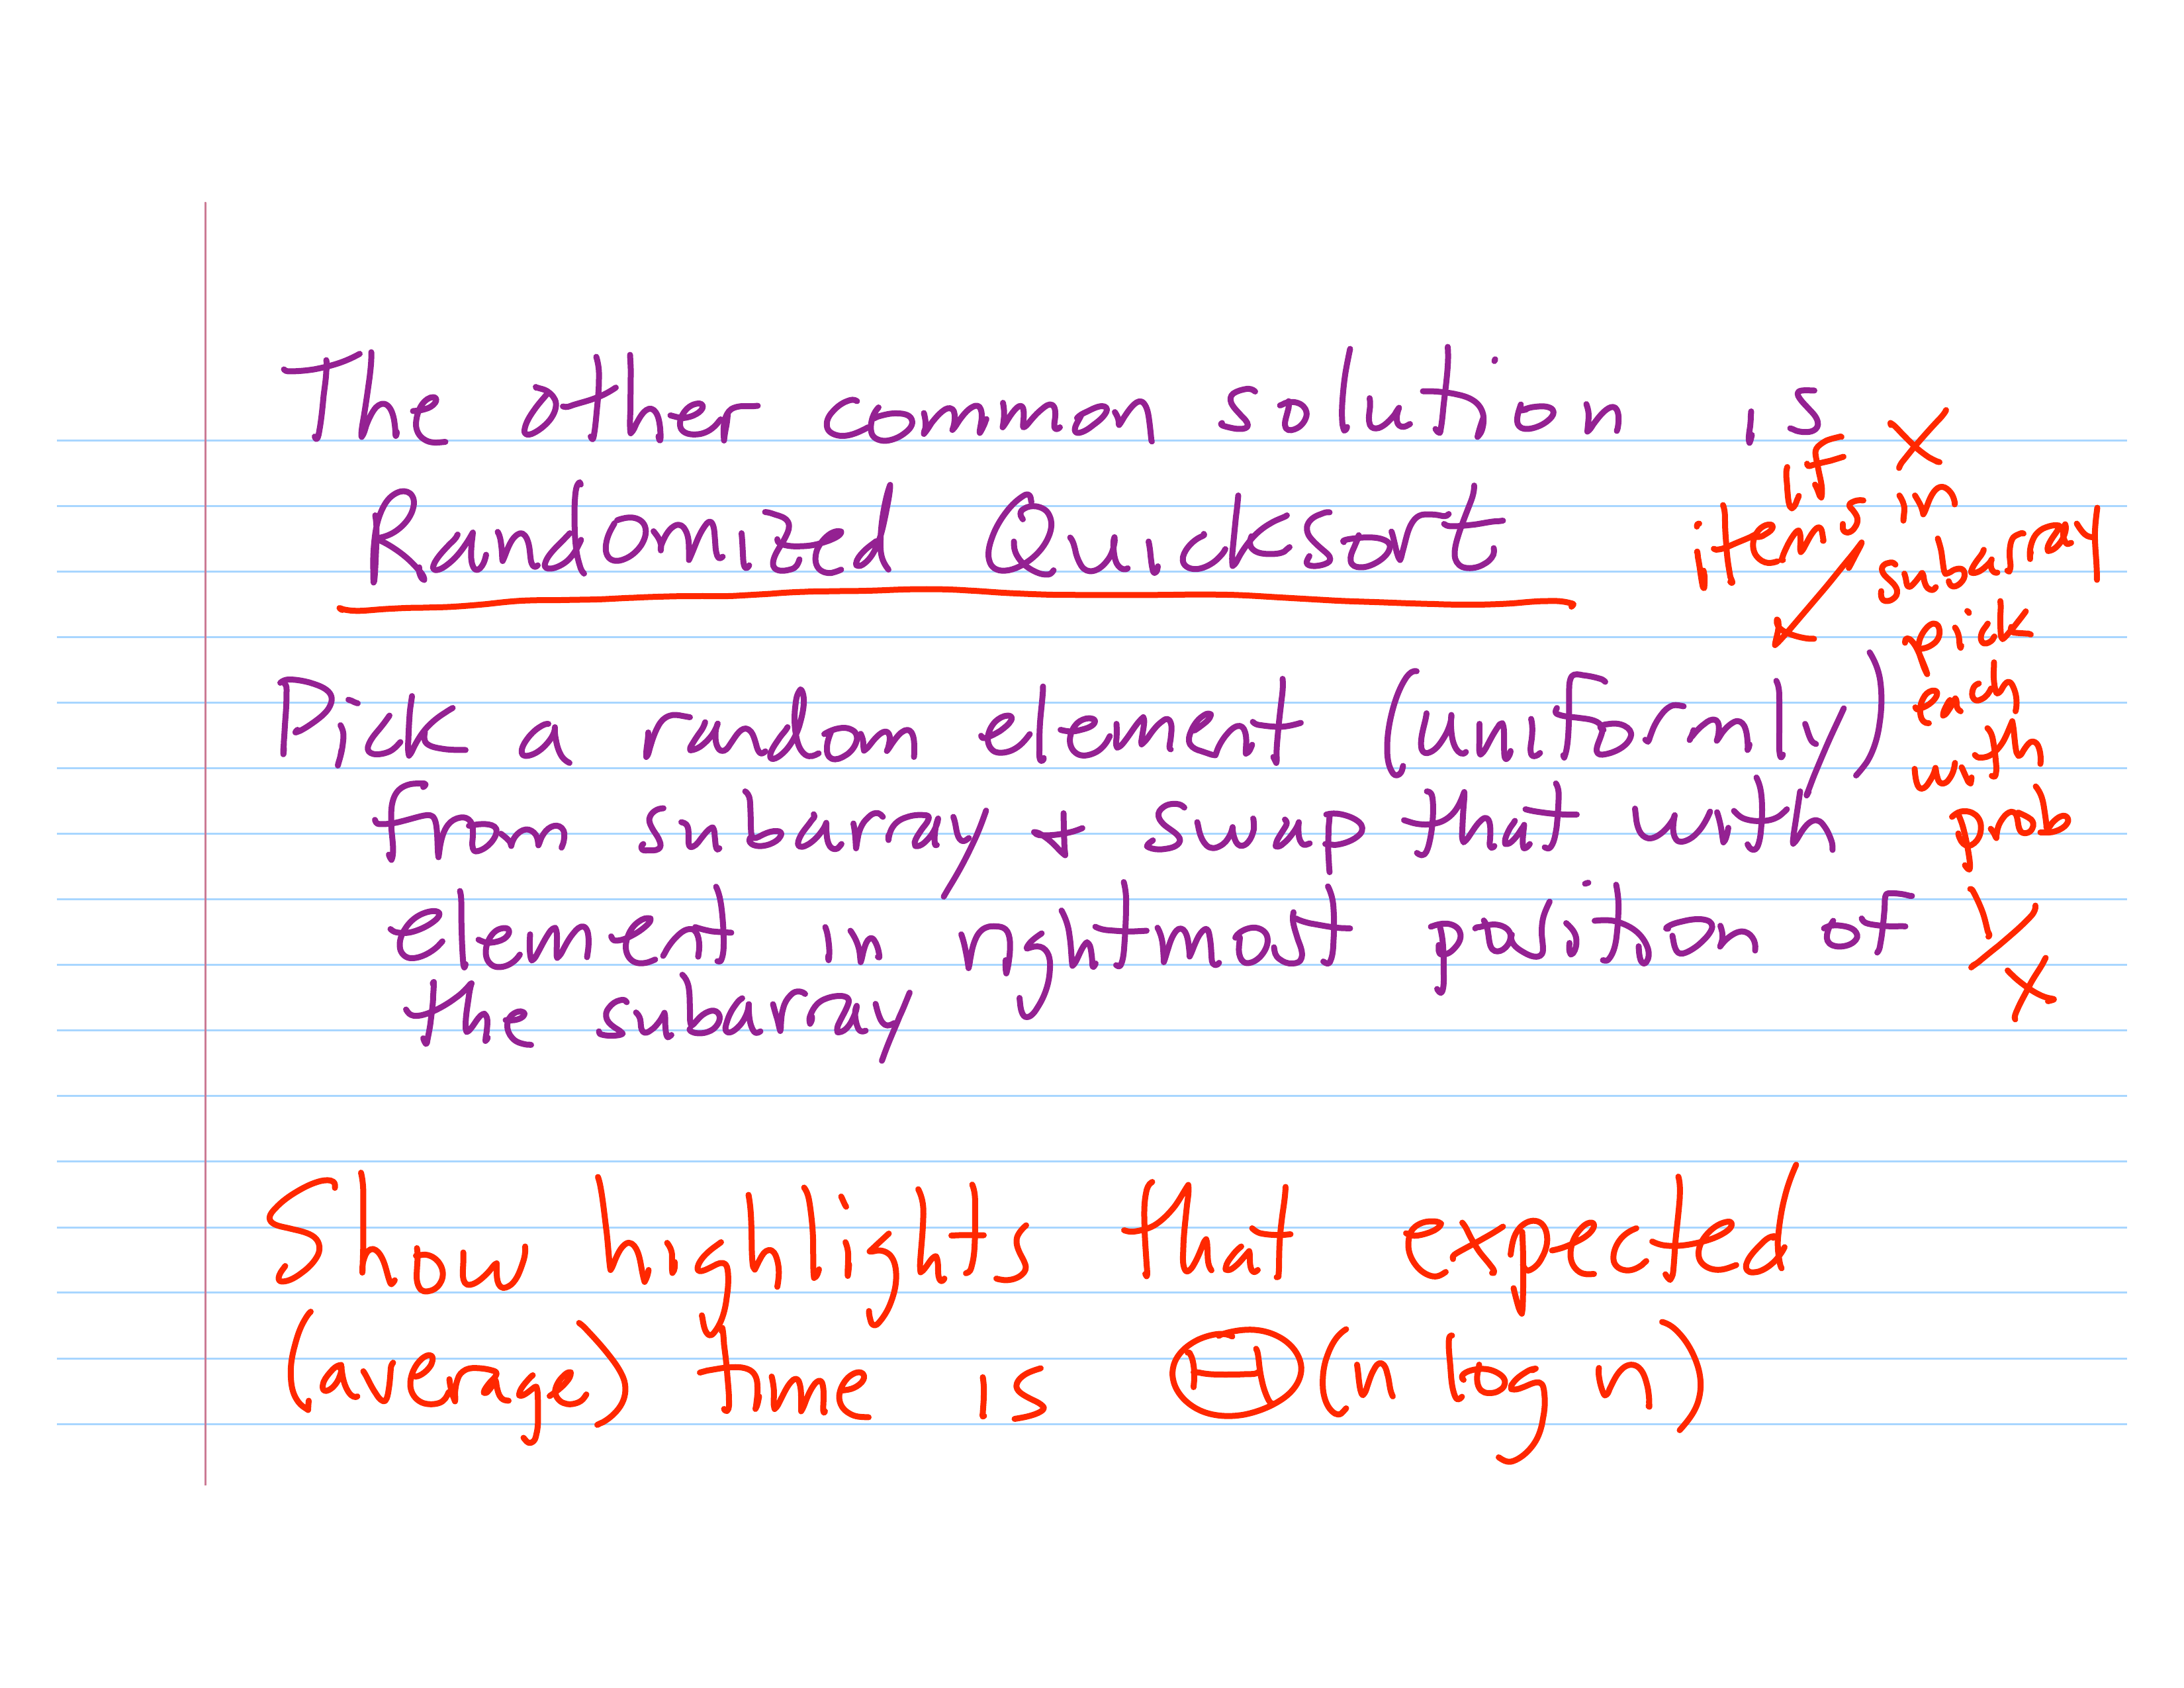 The other common solution is
Randomized Quicksort
Pick a random element (uniformly)
from subarray + swap that with
element in rightmost position of
the subarray
if x
items in
subarray
pick
each
with
prob
1/x
Show highlights that expected
(average) time is Θ(n log n)